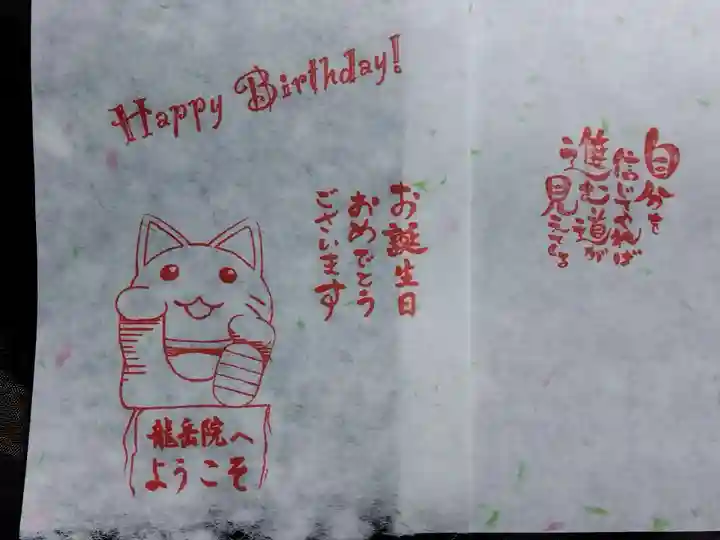 Happy Birthday!
お誕生日
おめでとう
ございます
龍岳院へ
ようこそ
自分を
信じてみれば
進む道が
見えてくる